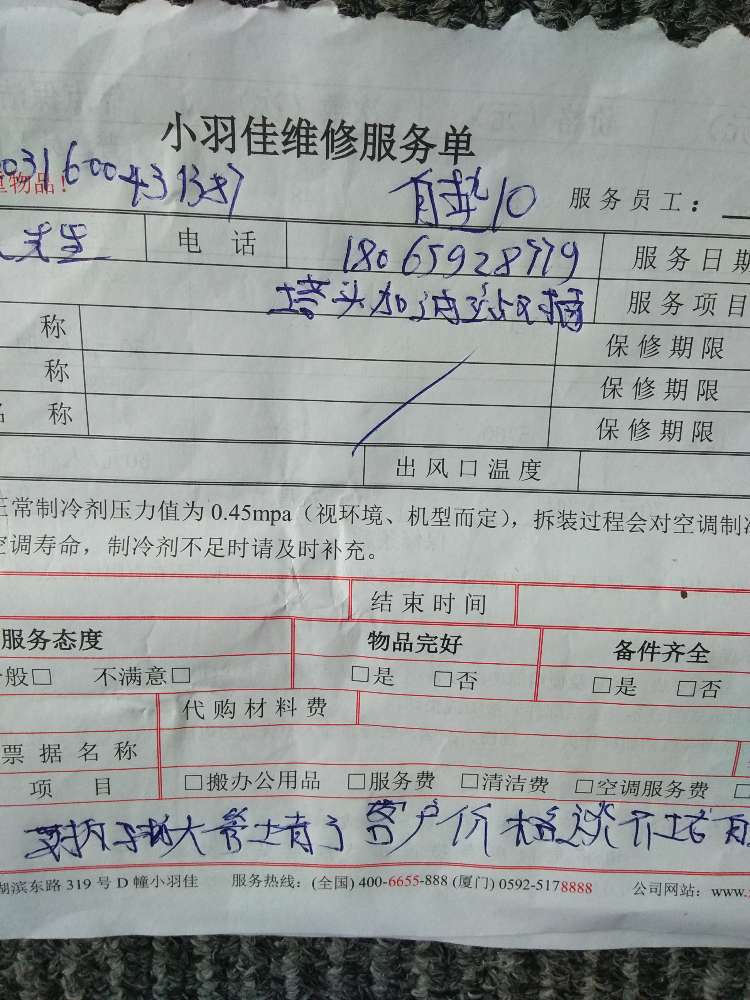 小羽佳维修服务单
0031600431387
物品！
自垫10 服务员工：
先生 电话 18065928779 服务日期
塔头加油站对楠 服务项目
称 保修期限
称 保修期限
名称 保修期限
出风口温度
正常制冷剂压力值为0.45mpa（视环境、机型而定），拆装过程会对空调制冷
空调寿命，制冷剂不足时请及时补充。
结束时间
服务态度 物品完好 备件齐全
一般□ 不满意□ □是 □否 □是 □否
代购材料费
票据名称
项目 □搬办公用品 □服务费 □清洁费 □空调服务费
大管 了 客户价格谈不
湖滨东路319号D幢小羽佳 服务热线：(全国) 400-6655-888 (厦门) 0592-5178888 公司网站：www.